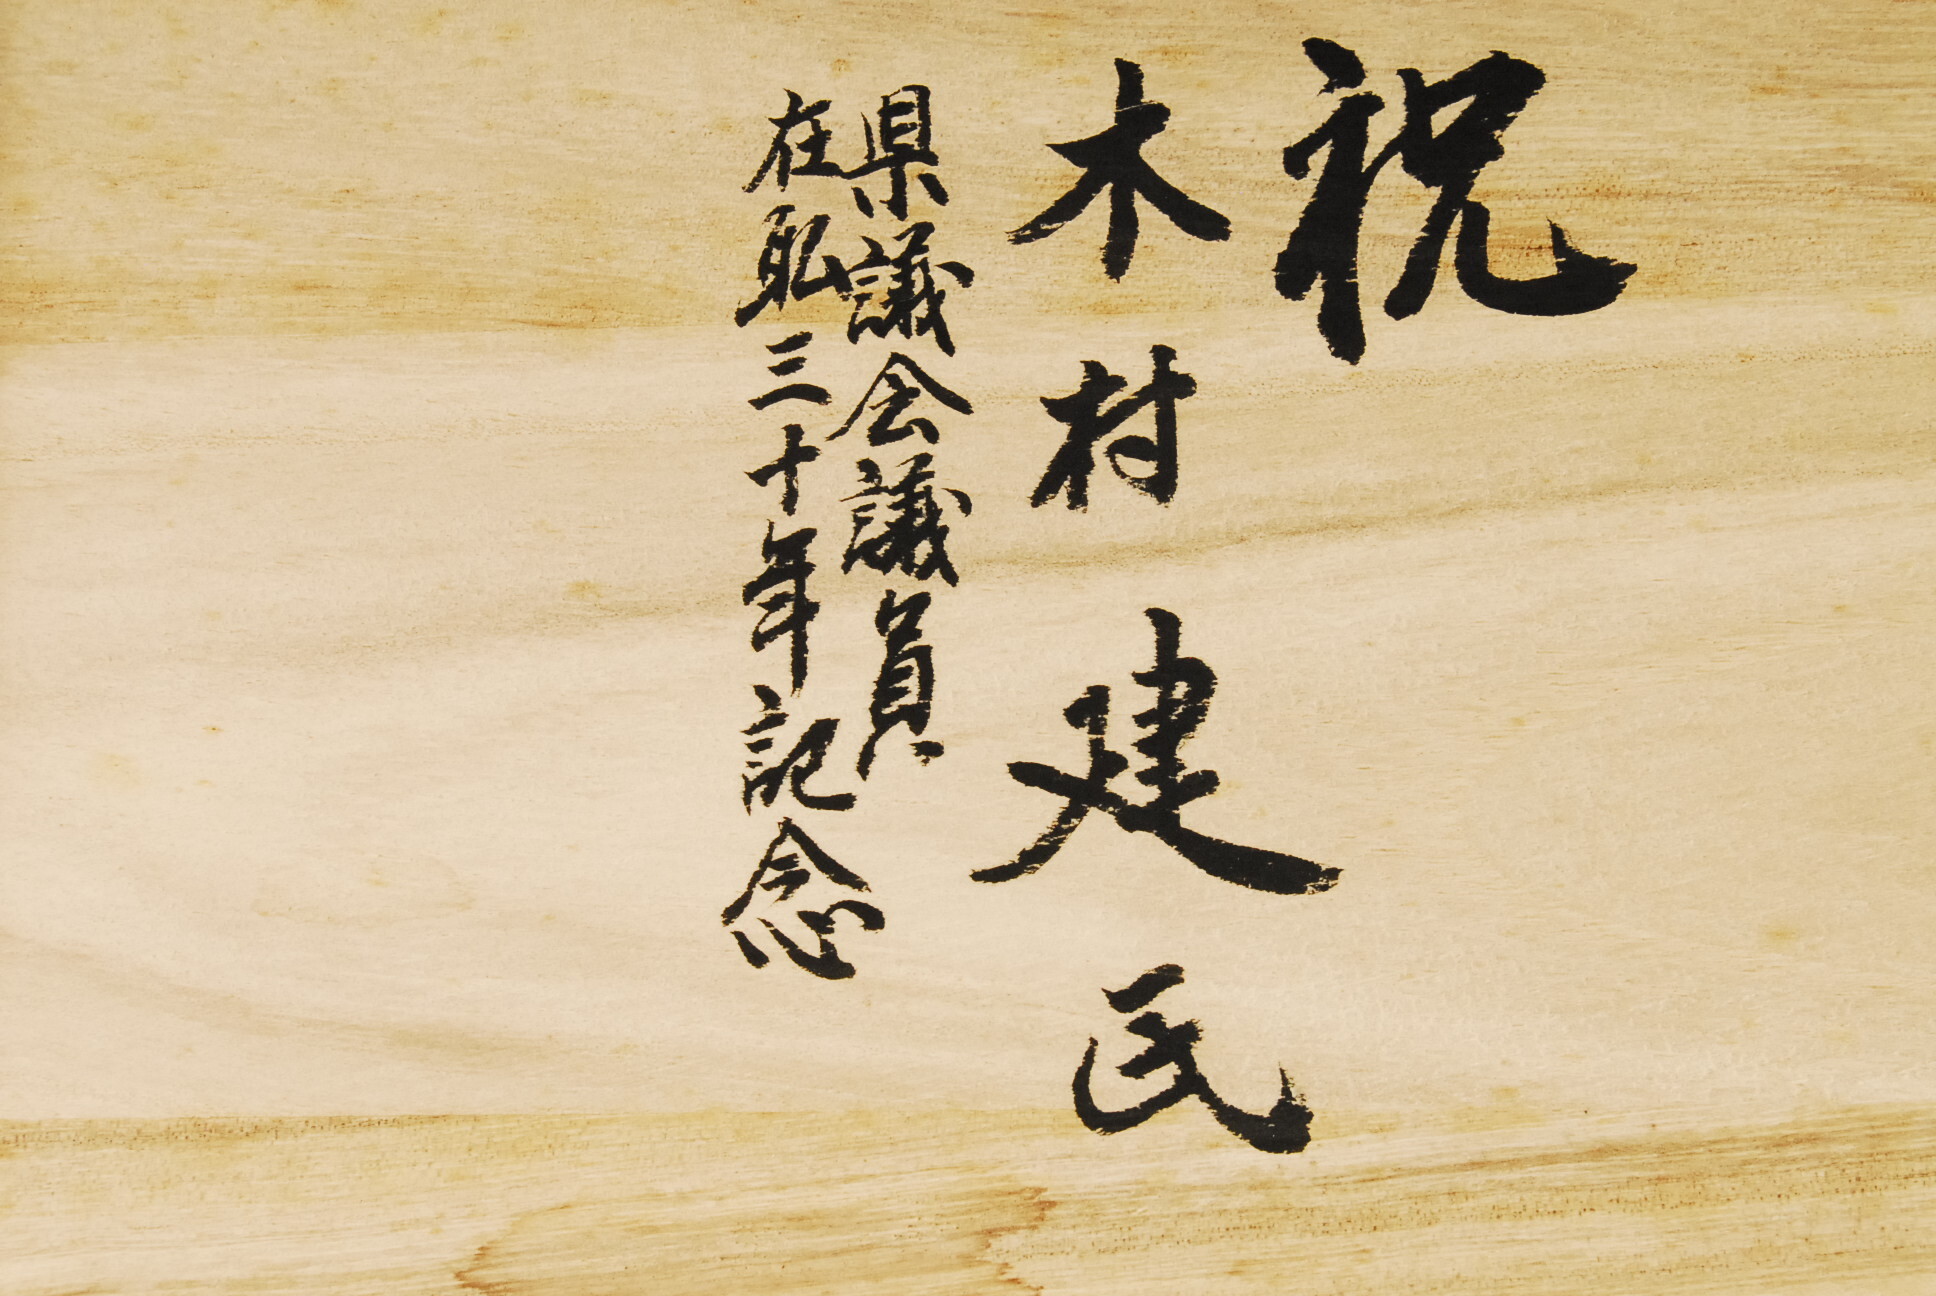 祝
木村建民
県議会議員
在職三十年記念